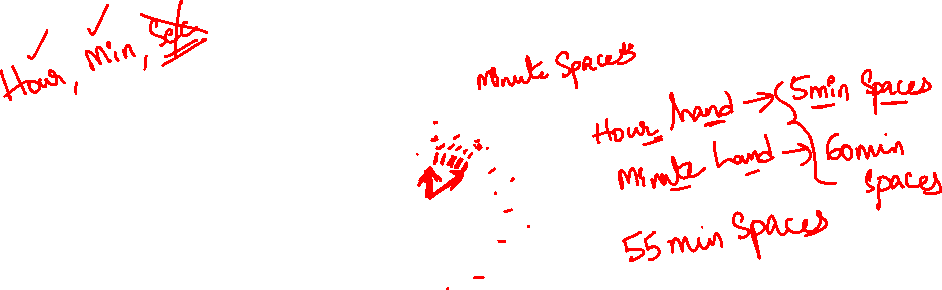 Hour, Min, Sec
Minute Spaces
Hour hand → 5min Spaces
Minute hand → 60min
Spaces
55 min Spaces